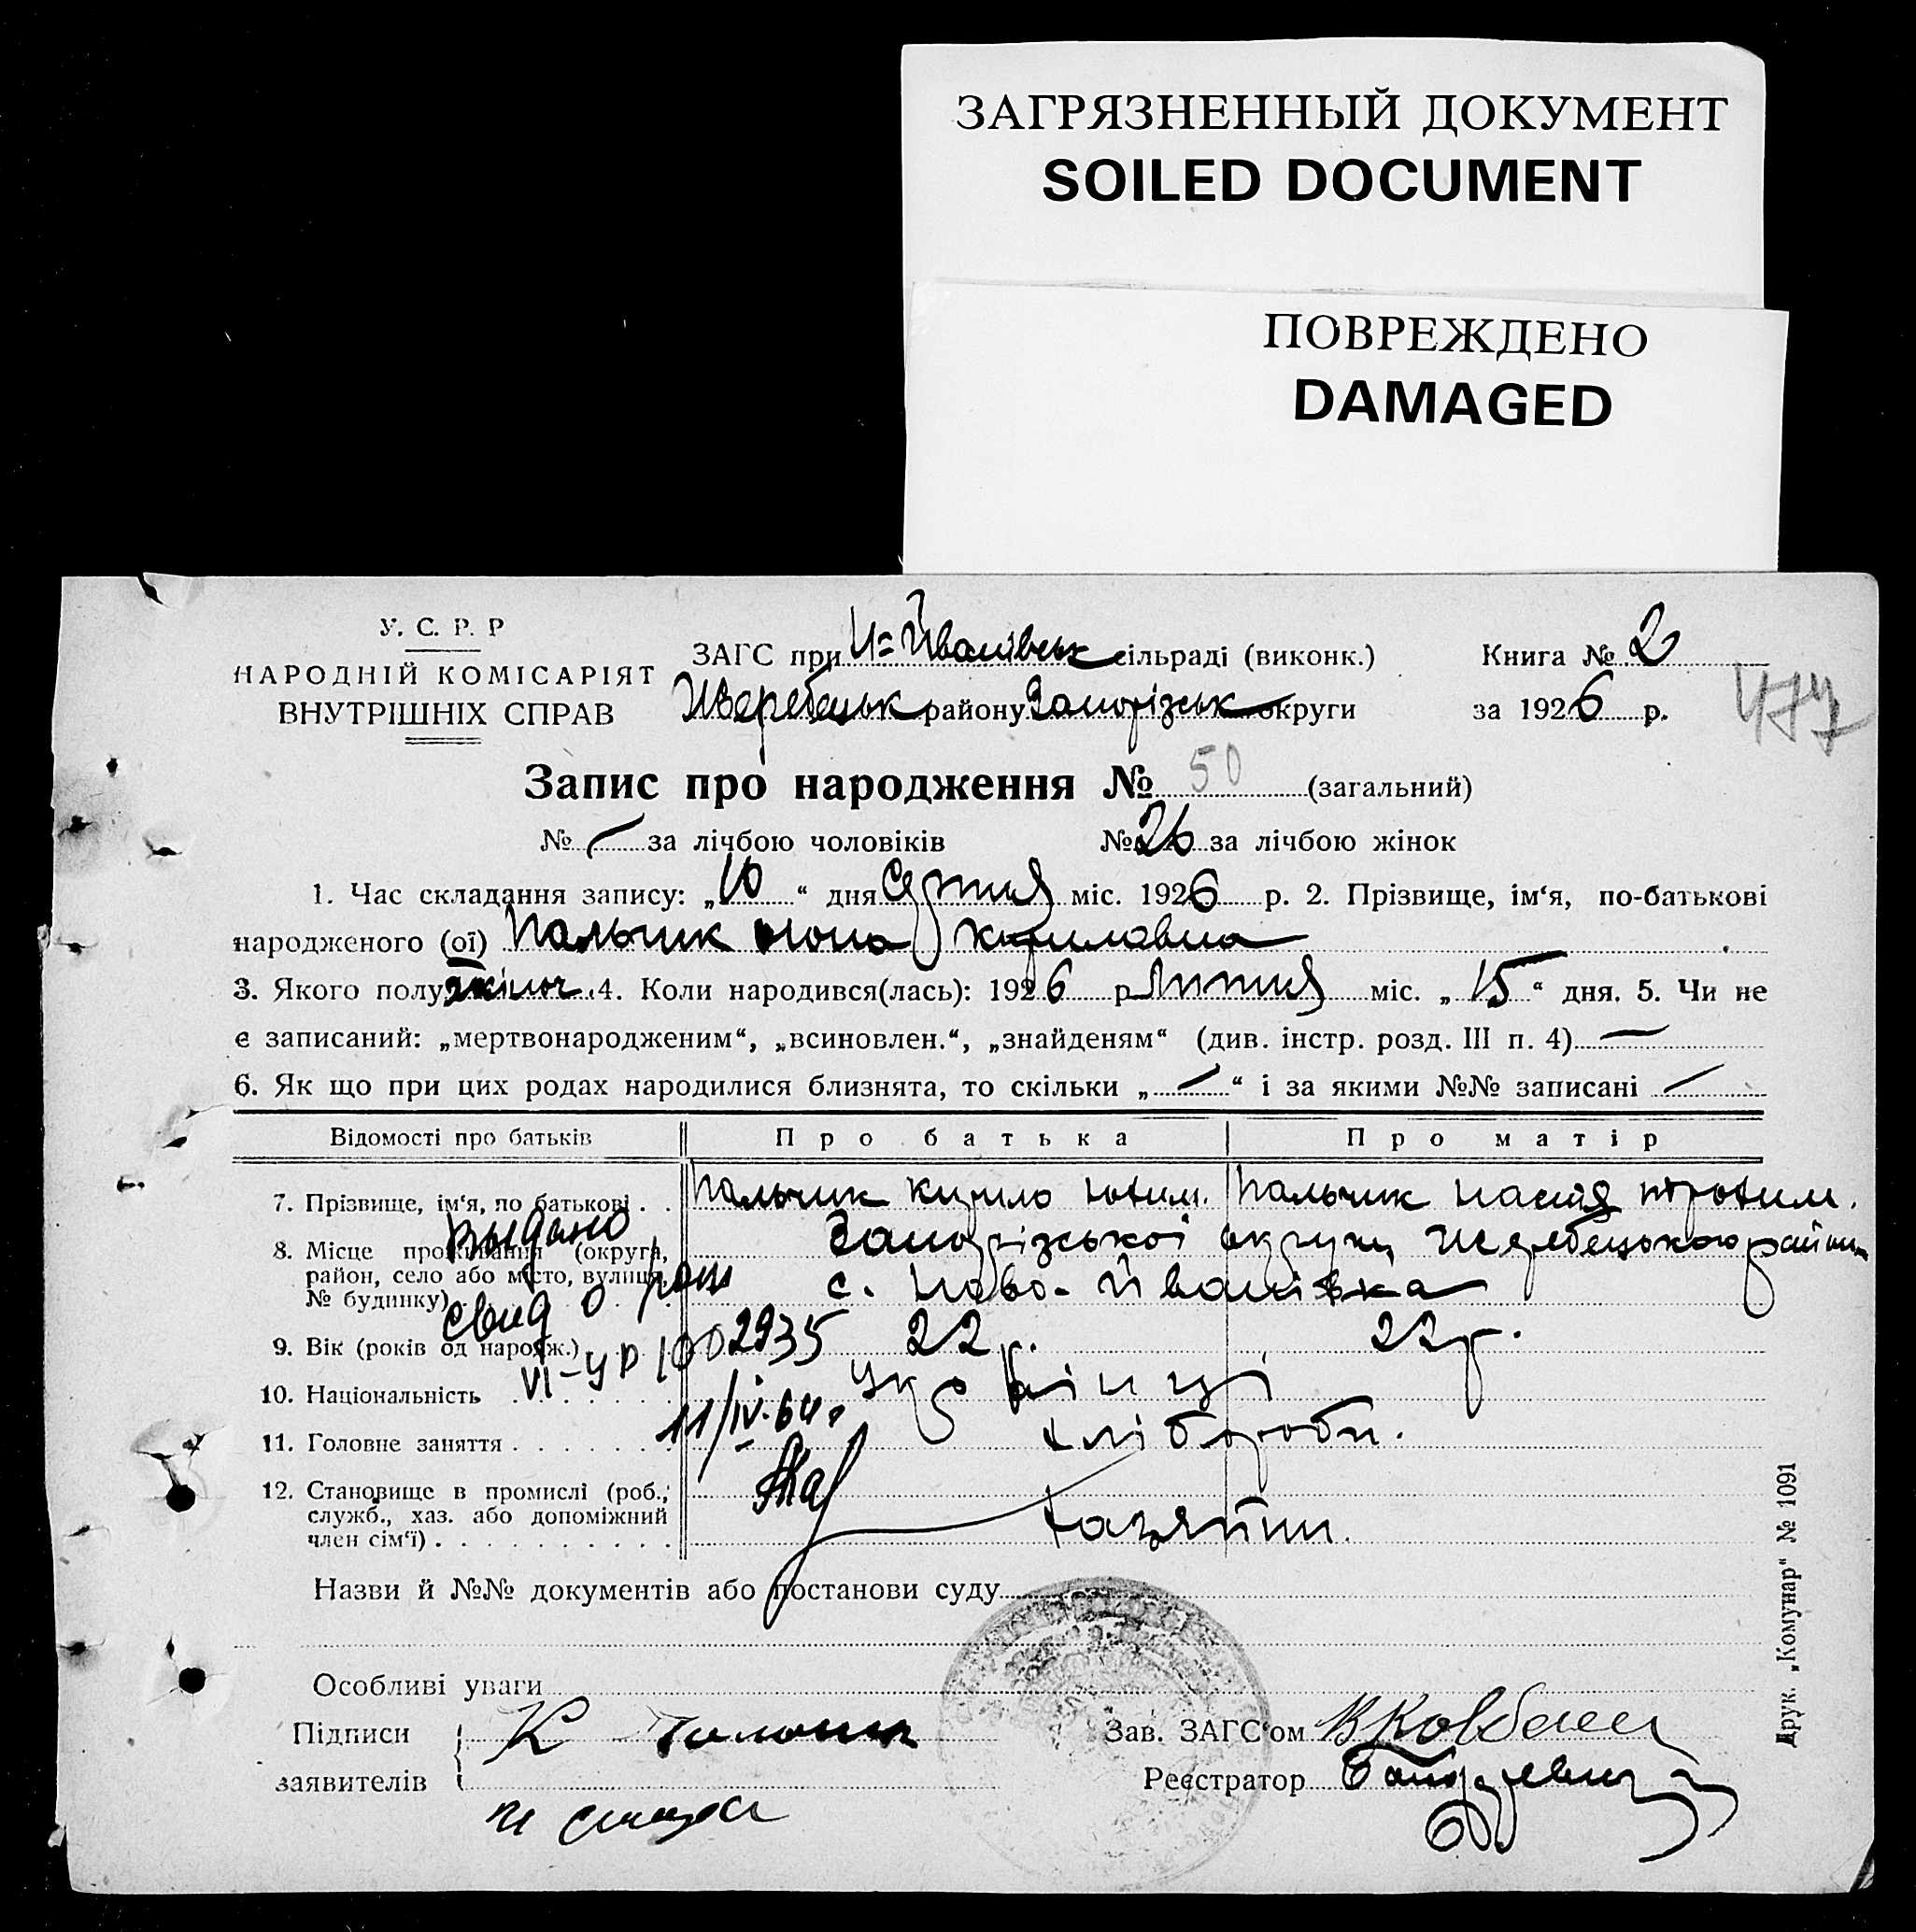 ЗАГРЯЗНЕННЫЙ ДОКУМЕНТ
SOILED DOCUMENT
ПОВРЕЖДЕНО
DAMAGED
У. С. Р. Р
НАРОДНІЙ КОМІСАРІЯТ
ВНУТРІШНІХ СПРАВ
ЗАГС при Н=Йванівськ сільраді (виконк.)
Жеребецьк району Запорізськ округи
Книга № 2
за 1926 р.
477
Запис про народження № 50 (загальний)
№ — за лічбою чоловіків № 26 за лічбою жінок
1. Час складання запису: „10“ дня Серпня міс. 1926 р. 2. Прізвище, ім‘я, по-батькові
народженого (ої) Пальчик Кирилавна
3. Якого полу жіноч. 4. Коли народився(лась): 1926 р. Липня міс. „15“ дня. 5. Чи не
є записаний: „мертвонародженим“, „всиновлен.“, „знайденям“ (див. інстр. розд. III п. 4) —
6. Як що при цих родах народилися близнята, то скільки „—“ і за якими №№ записані —
Відомості про батьків Про батька Про матір
7. Прізвище, ім‘я, по батькові . . Пальчик Кирило Юхим. Пальчик Настя Трохим.
8. Місце проживання (округа, район, село або місто, вулиця, № будинку) Запорізської округи Жеребецького району
с. Ново-Йванівка
9. Вік (років од народж.) 22 р. 22 р.
10. Національність Українці
11. Головне заняття хлібороби.
12. Становище в промислі (роб., служб., хаз. або допоміжний член сім‘ї) хазяїни.
Выдано
свид о рожд
VI-УР 1002935
11/IV-64г
Назви й №№ документів або постанови суду
Особливі уваги
Підписи заявителів К
Зав. ЗАГС‘ом В Ковбаса
Реєстратор
Друк. „Комунар“ № 1091